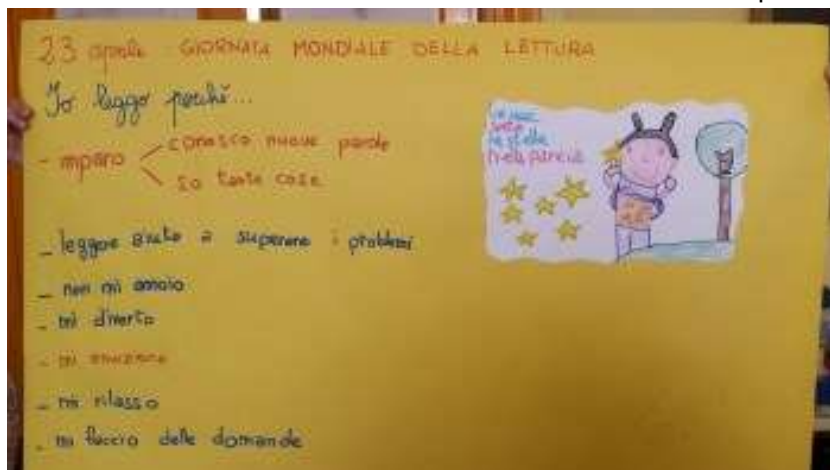 23 aprile GIORNATA MONDIALE DELLA LETTURA
Io leggo perché...
- imparo
conosco nuove parole
so tante cose
- leggere aiuta a superare i problemi
- non mi annoio
- mi diverto
- mi emoziono
- mi rilasso
- mi faccio delle domande
le stelle
nella pancia